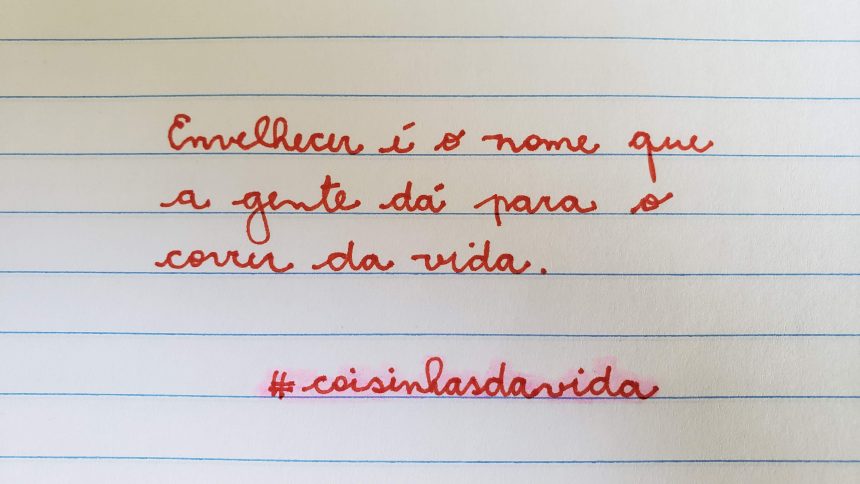 Envelhecer é o nome que
a gente dá para o
correr da vida.
#coisinhasdavida